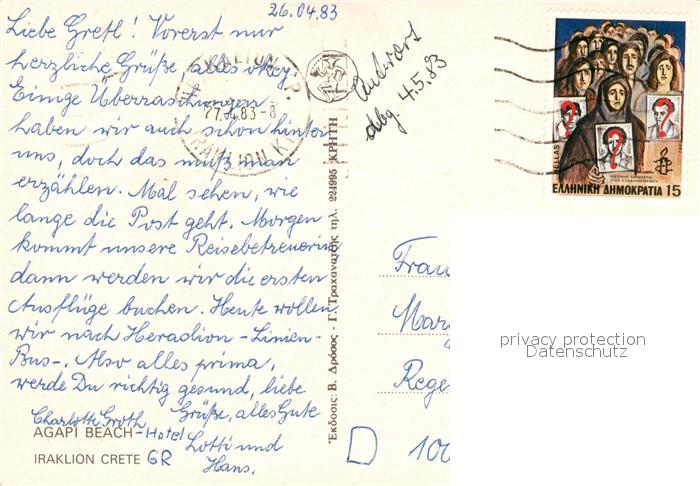 26.04.83
Liebe Gretl! Vorerst nur
herzliche Grüße, alles okey.
Einige Überraschungen
haben wir auch schon hinter
uns, doch das muß man
erzählen. Mal sehen, wie
lange die Post geht. Morgen
kommt unsere Reisebetreuerin
dann werden wir die ersten
Ausflüge buchen. Heute wollen
wir nach Heraolion - Linien-
Bus-. Also alles prima,
werde Du richtig gesund, liebe
Grüße, alles Gute
Lotti und
Hans.
Charlotte Groth
AGAPI BEACH - Hotel
IRAKLION CRETE GR
27.4.83-8
IRAKLION
Έκδοσις: Β. Δρόσος - Γ. Τραχανατζής τηλ. 224995 ΚΡΗΤΗ
Antwort
4.5.83
HELLAS
ΕΛΛΗΝΙΚΗ ΔΗΜΟΚΡΑΤΙΑ 15
Frau
D
privacy protection
Datenschutz